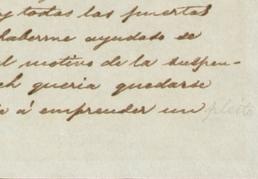 y todas las puertas
haberme ayudado se
l motivo de la suspen-
ch queria quedarse
á emprender un pleito